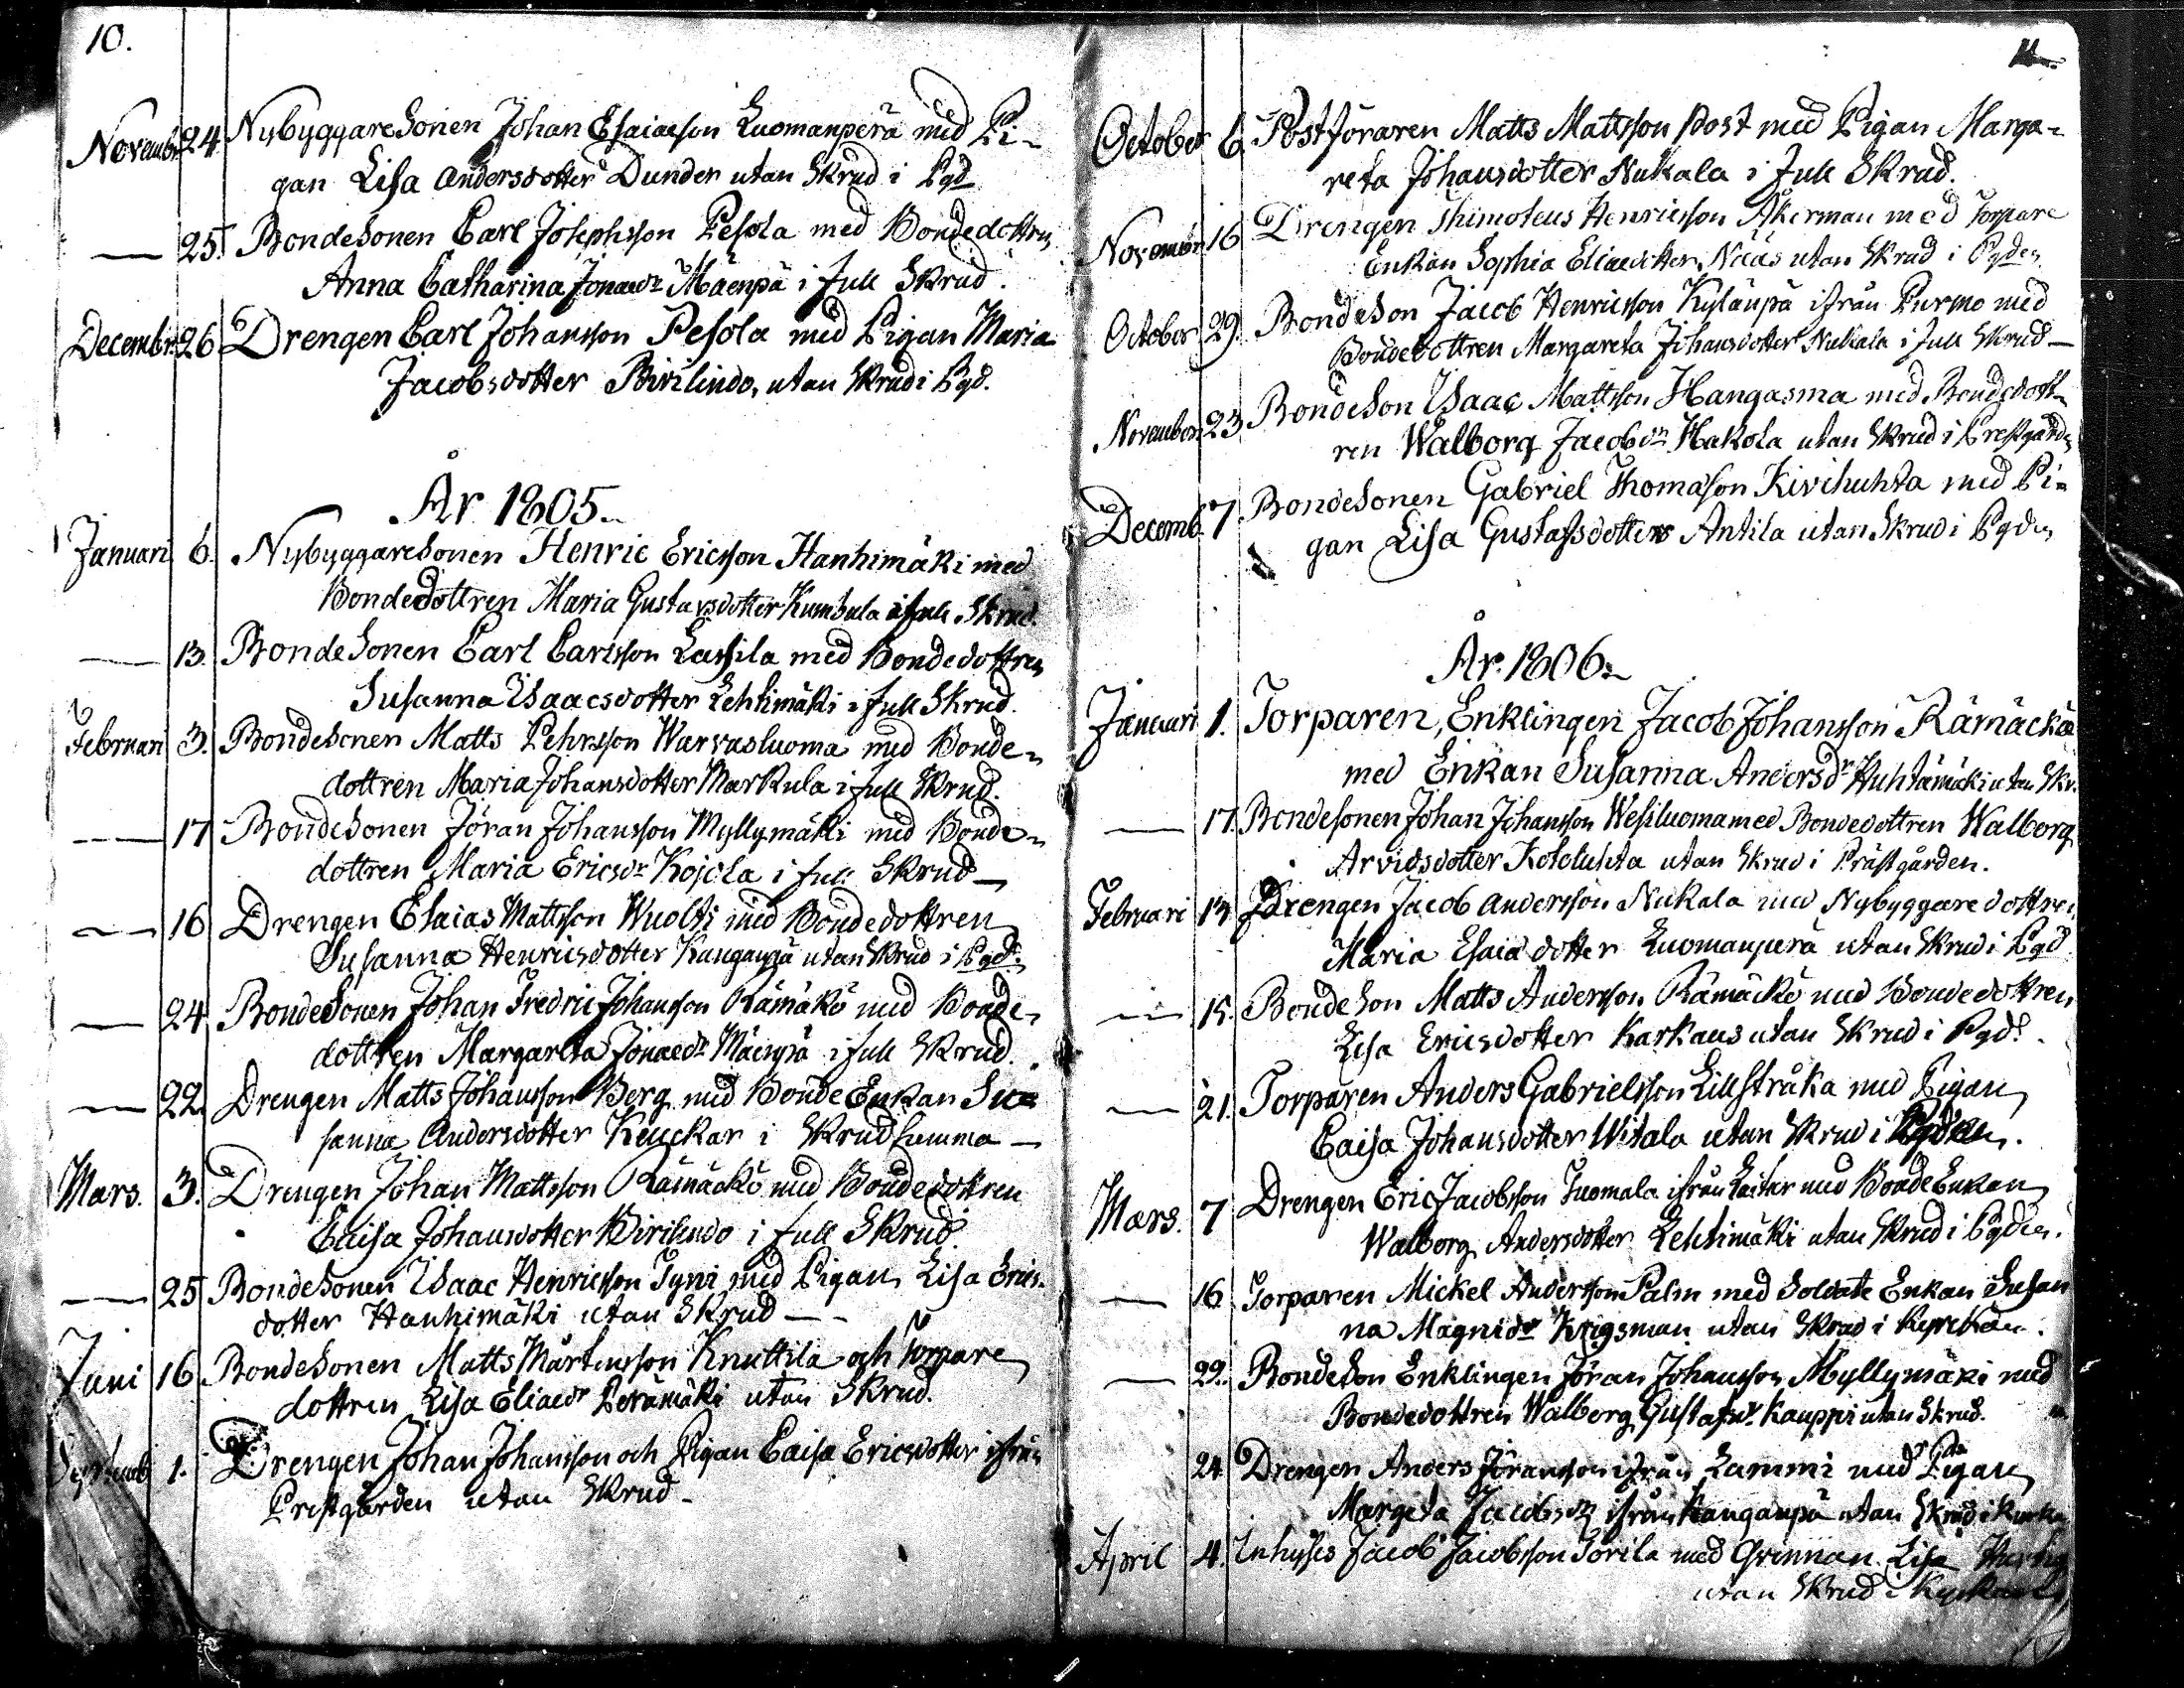 10.
Novembr 24. Nybyggaresonen Johan Esaiaeson Luomanperä med Pi-
gan Lisa Andersdotter Dunder utan Skrud i Pgd
— 25. Bondesonen Carl Josephsson Pesola med Bondedottren
Anna Catharina Jonaedr Mäenpä i full Skrud.
Decembr. 26 Drengen Carl Johansson Pesola med Pigan Maria
Jacobsdotter Pirilindo, utan Skrud i Pgd.
År 1805.
Januari 6. Nybyggaresonen Henric Ericsson Hanhimäki med
Bondedottren Maria Gustavsdotter Kumbula i full Skrud.
— 13. Bondesonen Carl Carlsson Lassila med Bondedottren
Susanna Isaacsdotter Lehtimäki i full Skrud.
Februari 3. Bondesonen Matts Pehrsson Warvasluoma med Bonde-
dottren Maria Johansdotter Markula i full Skrud.
— 17 Bondesonen Jöran Johansson Myllymäki med Bonde-
dottren Maria Ericsdr Kojola i full Skrud —
— 16 Drengen Esaias Mattsson Wuolti med Bondedottren
Susanna Henricsdotter Kanganpä utan Skrud i Pgd.
— 24 Bondesonen Johan Fredric Johansson Rämäkö med Bonde-
dottren Margareta Jonaedr Mäenpä i full Skrud.
— 22. Drengen Matts Johansson Berg med Bonde Enkan Su-
sanna Andersdotter Keuckar i Skrud summa —
Mars. 3. Drengen Johan Mattsson Rämäckö med Bondedottren
Caisa Johansdotter Pirilindo i full Skrud
— 25 Bondesonen Isaac Henricsson Tyni med Pigan Lisa Erics-
dotter Hanhimäki utan Skrud —
Juni 16 Bondesonen Matts Mårtensson Knuttila och Torpare
dottren Lisa Eliaedr Perämäki utan Skrud.
Septemb 1. Drengen Johan Johansson och Pigan Caisa Ericsdotter ifrån
Prestgården utan Skrud —
11.
October 6. Postföraren Matts Mattsson Post med Pigan Marga-
reta Johansdotter Nukala i full Skrud.
Novembr 16 Drengen Thimoteus Henricsson Åkerman med Torpare
Enkan Sophia Eliaedotter Nääs utan Skrud i Pgden
October 29. Bondeson Jacob Henricsson Kylänpä ifrån Purmo med
Bondedottren Margareta Johansdotter Nukala i full Skrud —
November 23. Bondeson Isaac Mattsson Hangasma med Bondedott-
ren Walborg Jacobsdr Hakola utan Skrud i Prestgården
Decemb. 7. Bondesonen Gabriel Thomasson Kivihuhta med Pi-
gan Lisa Gustafsdotter Antila utan Skrud i Pgden
År. 1806.
Januari 1. Torparen, Enklingen Jacob Johansson Rämäckö
med Enkan Susanna Andersdr Huhtamäki utan Skr.
— 17. Bondesonen Johan Johansson Wesiluoma med Bondedottren Walborg
Arvidsdotter Kololuhta utan Skrud i Prästgården.
Februari 13 Drengen Jacob Andersson Nukala med Nybyggaredottren
Maria Esaiædotter Luomanperä utan Skrud i Pgd
— 15. Bondeson Matts Andersson Rämäckö med Bondedottren
Lisa Ericsdotter Karkaus utan Skrud i Pgd.
— 21. Torparen Anders Gabrielsson Lillstråka med Pigan
Caisa Johansdotter Witala utan Skrud i Pgden.
Mars. 7 Drengen Eric Jacobsson Tuomala ifrån med Bonde Enkan
Walborg Andersdotter Lehtimäki utan Skrud i Pgden.
— 16 Torparen Mickel Andersson Palm med Soldate Enkan Susan
na Magnidr Krigsman utan Skrud i Kyrckan.
— 22. Bondeson Enklingen Jöran Johansson Myllymäki med
Bondedottren Walborg Gustafsdr Kauppi utan Skrud.
24 Drengen Anders Jöransson ifrån Lammi med Pigan
Margeta Jacobsdr ifrån Kanganpä utan Skrud i
April 4. Inhyses Jacob Jacobsson Torila med Qvinnan Lisa
utan Skrud i Kyrkan